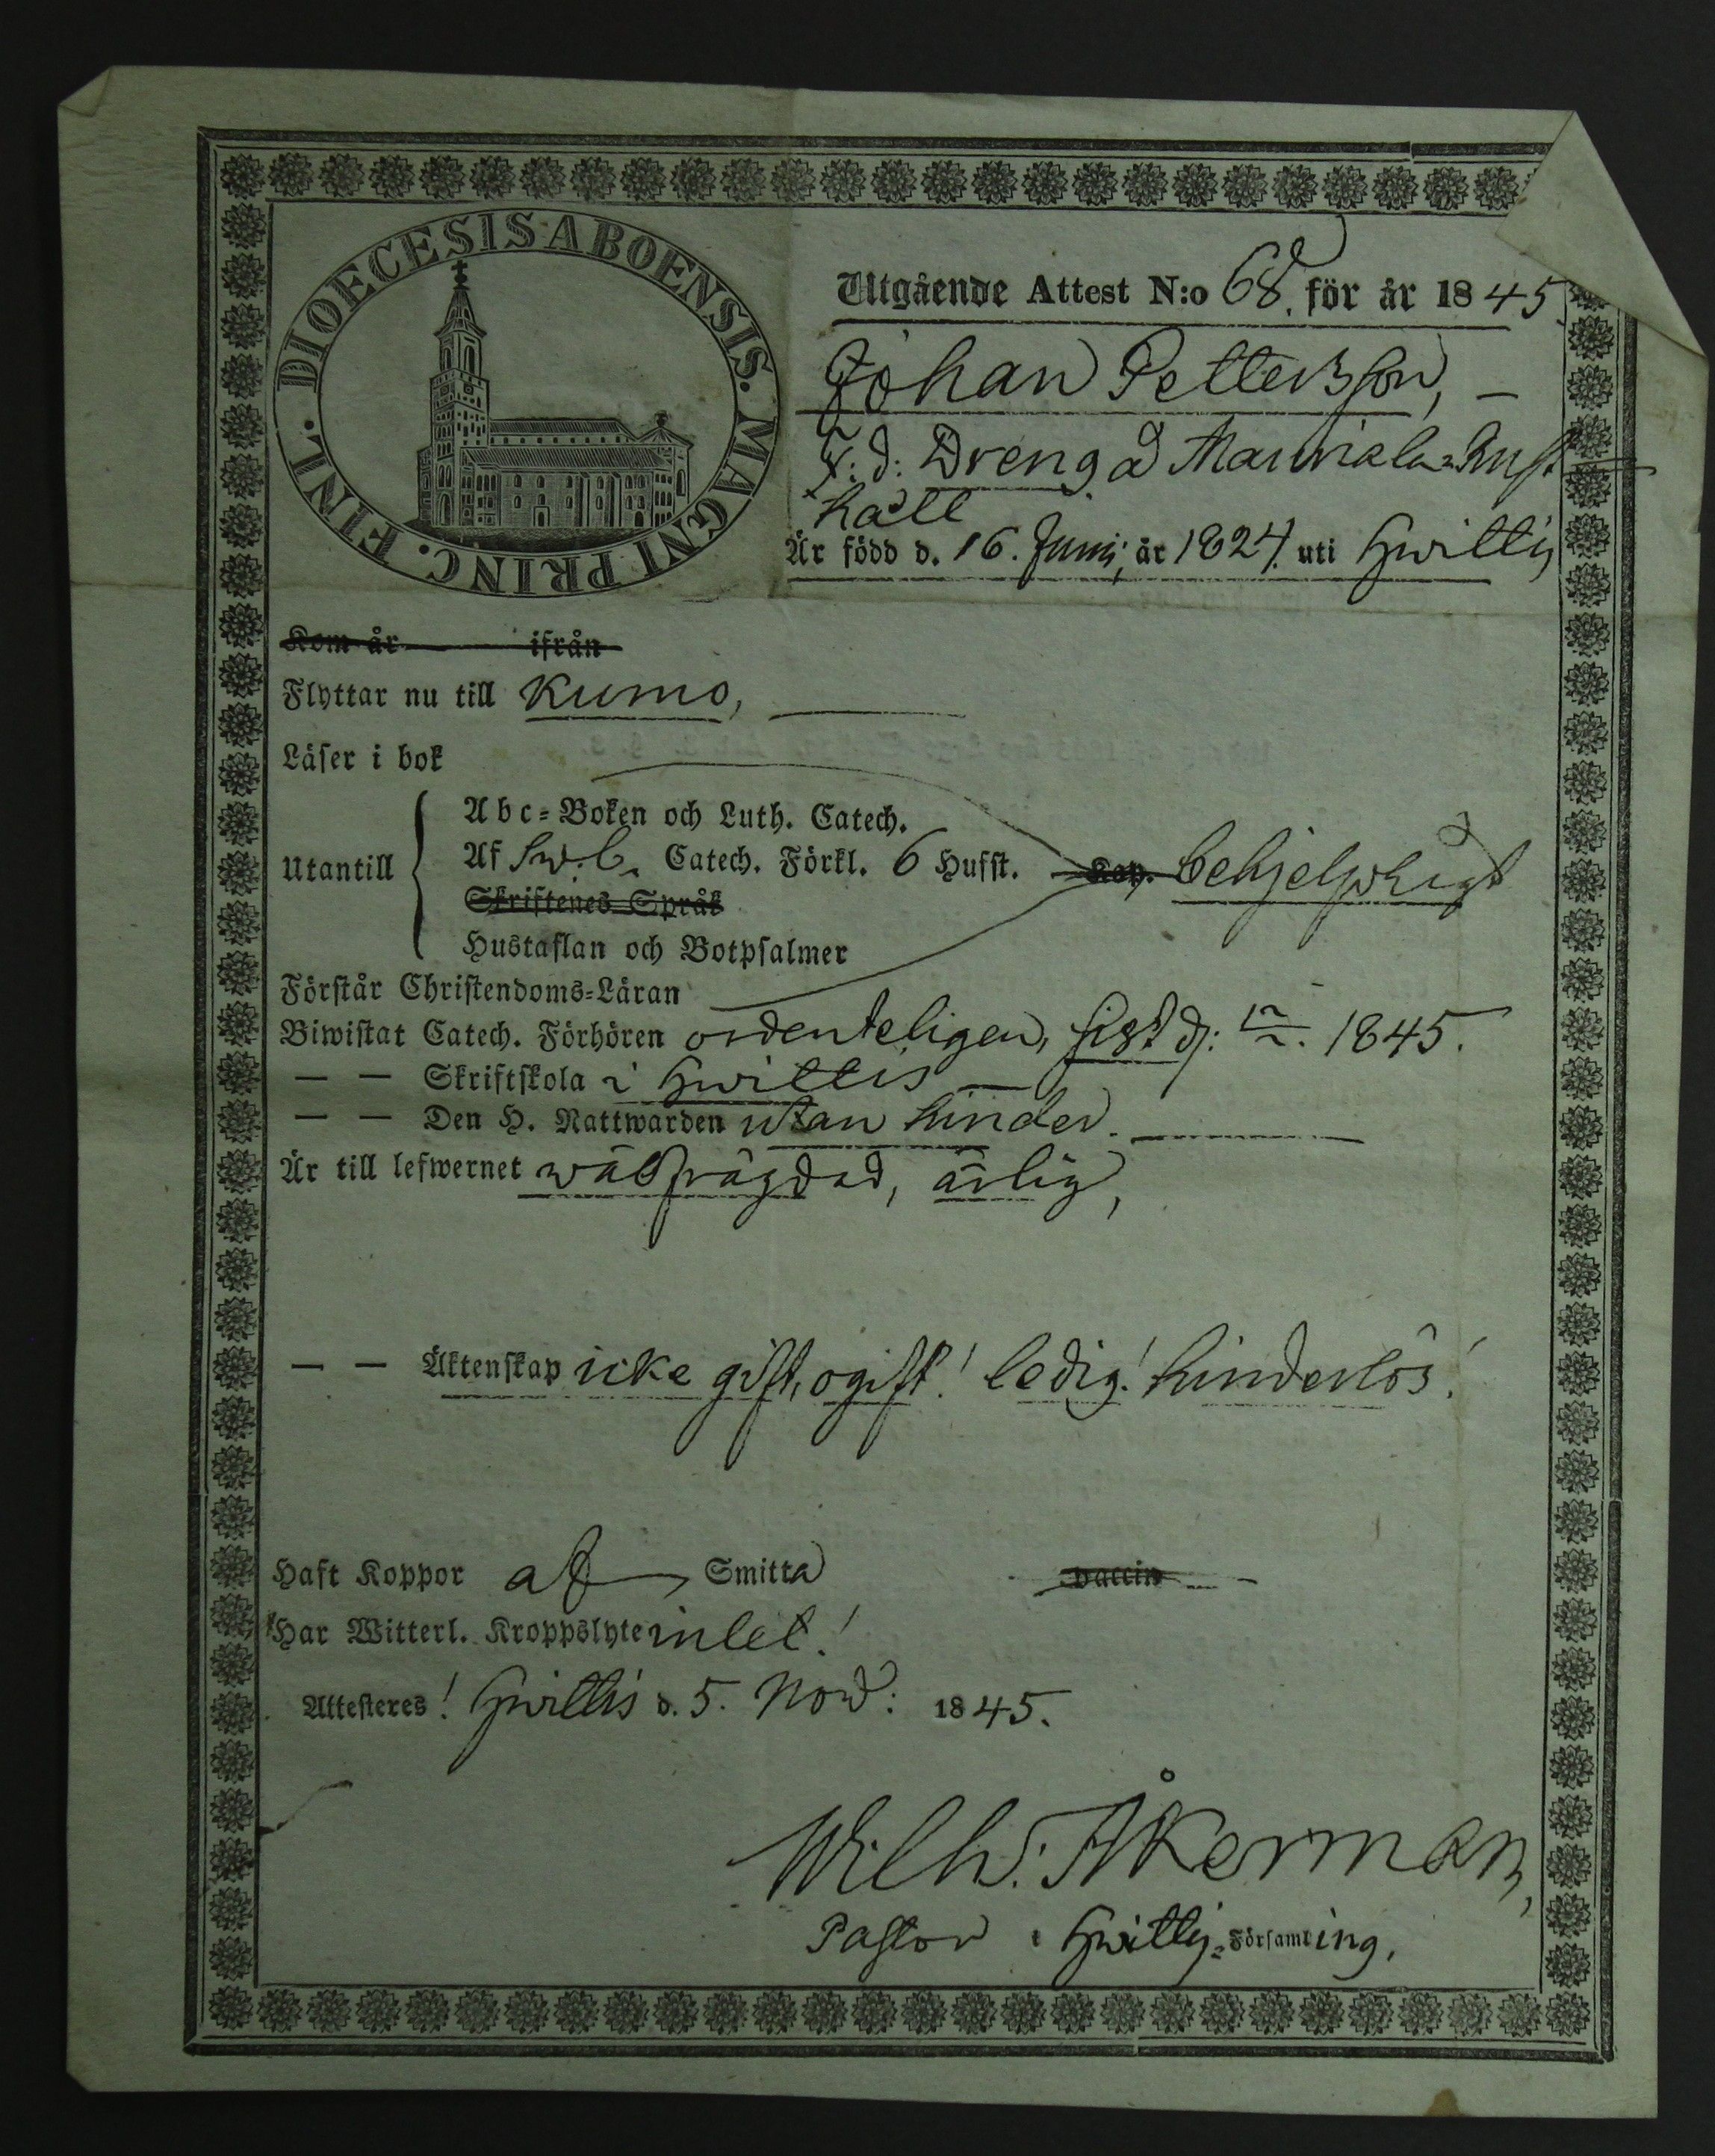 DIOECESIS ABOENSIS. MAGNI PRINC. FINL.
Utgående Attest N:o 68. för år 1845.
Johan Pettersson, —
F: d: Dreng å Mauriala=Rust
håll
Är född d. 16. Junii, år 1824. uti Hwittis
Kom år ifrån
Flyttar nu till Kumo,
Läser i bok
Utantill
Abc=Boken och Luth. Catech.
Af Sweb. Catech. Förkl. 6 Hufst. Kap. behjelpligt
Skriftenes Språk
Hustaflan och Botpsalmer
Förstår Christendoms=Läran
Biwistat Catech. Förhören ordenteligen, sist d: 1845.
— — Skriftskola i Hwittis —
— — Den H. Nattwarden utan hinder.
Är till lefwernet wälfrägdad, ärlig,
— — Äktenskap icke gift, ogift! ledig! hinderlös!
Haft Koppor af Smitta vaccin
Har Witterl. Kroppslyte intet!
Attesteres! Hwittis d. 5. Nov: 1845.
Wilh: Åkerman,
Pastor i Hwittis=Församling.